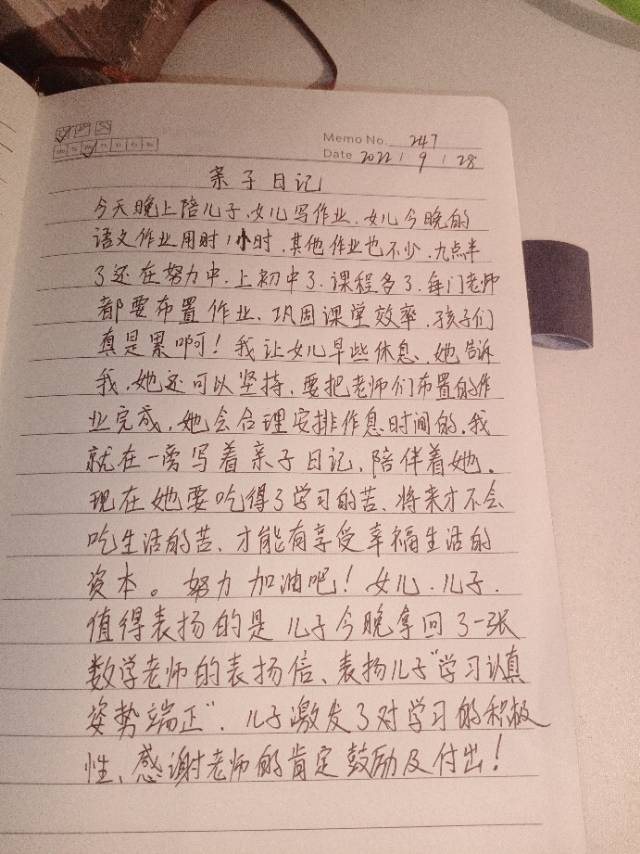 Memo No. 247
Mo Tu We Th Fr Sa Su
Date 2022 / 9 / 28
亲子日记
今天晚上陪儿子、女儿写作业,女儿今晚的
语文作业用时1小时,其他作业也不少,九点半
了还在努力中,上初中了,课程多了,每门老师
都要布置作业、巩固课堂效率,孩子们
真是累啊!我让女儿早些休息、她告诉
我,她还可以坚持,要把老师们布置的作
业完成,她会合理安排作息时间的,我
就在一旁写着亲子日记,陪伴着她。
现在她要吃得了学习的苦、将来才不会
吃生活的苦、才能有享受幸福生活的
资本。努力 加油吧!女儿、儿子,
值得表扬的是儿子今晚拿回了一张
数学老师的表扬信、表扬儿子“学习认真
姿势端正”,儿子激发了对学习的积极
性、感谢老师的肯定鼓励及付出!